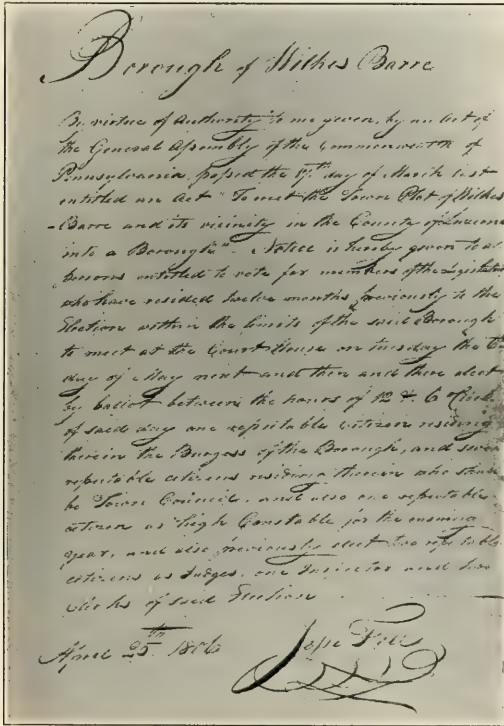 Borough of Wilkes Barre
By virtue of Authority to me given, by an act of
the General Assembly of the Commonwealth of
Pennsylvania, passed the 17th day of March last
entitled an Act "To erect the Town Plot of Wilkes
-Barre and its vicinity in the County of Luzerne
into a Borough" - Notice is hereby given to all
persons entitled to vote for members of the Legislature
who have resided twelve months previously to the
Election within the limits of the said Borough
to meet at the Court House on Tuesday the 6th
day of May next and then and there elect
by ballot between the hours of 12 & 6 o'clock
of said day one reputable citizen residing
therein the Burgess of the Borough, and seven
reputable citizens residing therein who shall
be Town Council, and also one reputable
citizen as high Constable for the ensuing
year, and also previously elect two reputable
citizens as Judges, one Inspector and two
clerks of said Election
April 25th 1806
Jesse Fell